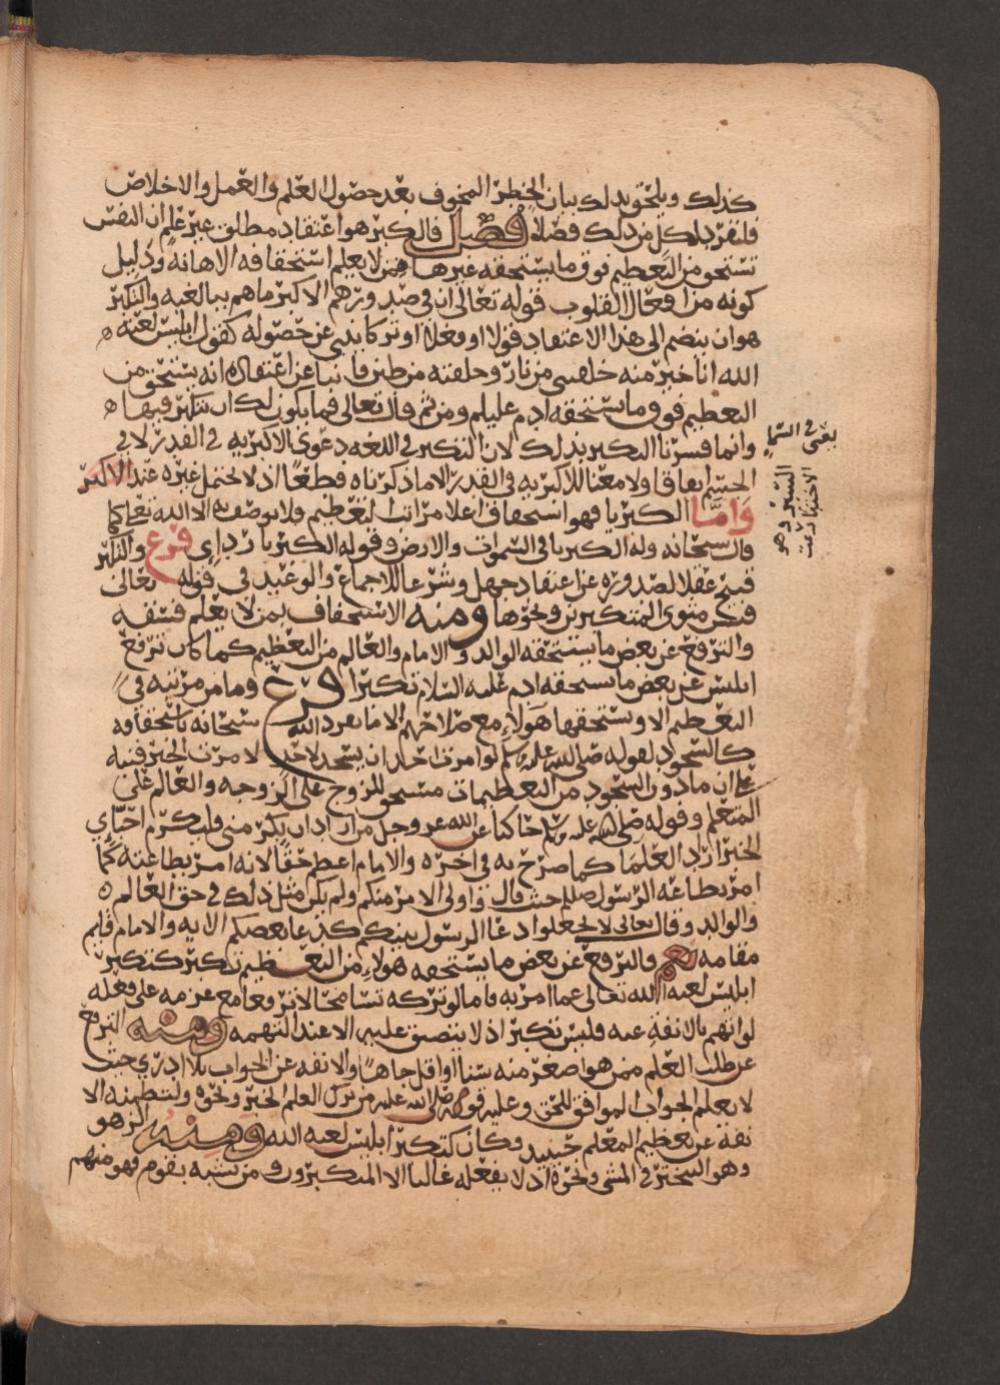 كذلك ويلحق بذلك بيان الخطر المخوف بعد حصول العلم والعمل والاخلاص
فلنفرد لكل من ذلك فصلا فصل فالكبر هو اعتقاد مطلق عن غير علم ان النفس
تستحق من التعظيم فوق ما يستحقه غيرها ممن لا يعلم استحقاقه الاهانة ودليل
كونه من افعال القلوب قوله تعالى ان في صدورهم الا كبر ما هم ببالغيه والتكبر
هو ان ينضم الى هذا الاعتقاد قولا او فعلا او تركا ينبي عن حصوله كقول ابليس لعنه
الله انا خير منه خلقتني من نار وخلقته من طين فانبا عن اعتقاده انه يستحق من
التعظيم فوق ما يستحقه ادم عليلم ومن ثم قال تعالى فما يكون لك ان تتكبر فيها
وانما فسرنا التكبر بذلك لان التكبر في اللغه دعوى الاكبريه في القدر لا في
الجسم اتفاقا ولا معنا للاكبريه في القدر الا ما ذكرناه قطعا اذ لا يحتمل غيره عند الاكثر
واما الكبريا فهو استحقاق اعلا مراتب التعظيم ولا يوصف به الا الله تعلى كما
قال سبحانه وله الكبريا في السموات والارض وقوله الكبريا ردائي فرع والتكبر
قبيح عقلا لصدوره عن اعتقاد جهل وشرعا للاجماع والوعيد في قوله تعالى
فبئس مثوى المتكبرين ونحوها ومنه الاستخفاف بمن لا يعلم فسقه
والترفع عن بعض ما يستحقه الوالد والامام والعالم من التعظيم كما كان ترفع
ابليس عن بعض ما يستحقه ادم عليه السلام تكبرا فرع وما من مرتبه في
التعظيم الا ويستحقها هولاء مع صلاحهم الا ما تفرد الله سبحانه باستحقاقه
كالسجود لقوله صلى الله عليه وسلم لو امرت احدا ان يسجد لاحد لامرت الخبر فنبه
على ان ما دون السجود من التعظيمات مستحق للزوج على الزوجه والعالم على
المتعلم وقوله صلى الله عليه وسلم حاكيا عن الله عز وجل من اراد ان يكرمني فليكرم احبائي
الخبر اراد العلما كما صرح به في اخره والامام اعظم حقا لانه امر بطاعته كما
امر بطاعة الرسول صللم حيث قال واولي الامر منكم ولم يكن مثل ذلك في حق العالم
والوالد وقال تعالى لا تجعلوا دعا الرسول بينكم كدعا بعضكم الايه والامام قايم
مقامه نعم والترفع عن بعض ما يستحقه هولاء من التعظيم تكبر كتكبر
ابليس لعنه الله تعالى عما امر به فاما لو تركه تسامحا لا ترفعا مع عزمه على فعله
لو اتهم بالانفة عنه فليس تكبرا اذ لا يتضيق عليه الا عند التهمه ومنه الترفع
عن طلب العلم ممن هو اصغر منه سنا او اقل جاها والانفه عن الجواب بلا ادري حيث
لا يعلم الجواب الموافق للحق وعليه قوله صلى الله عليه من ترك العلم الخبر ونحوه ولتضمنه الا
نفة عن تعظيم المعلم حينيذ وكان كتكبر ابليس لعنه الله ومنه الزهو
وهو التبختر في المشي ونحوه اذ لا يفعله غالبا الا المتكبرون ومن تشبه بقوم فهو منهم
يعني في السما